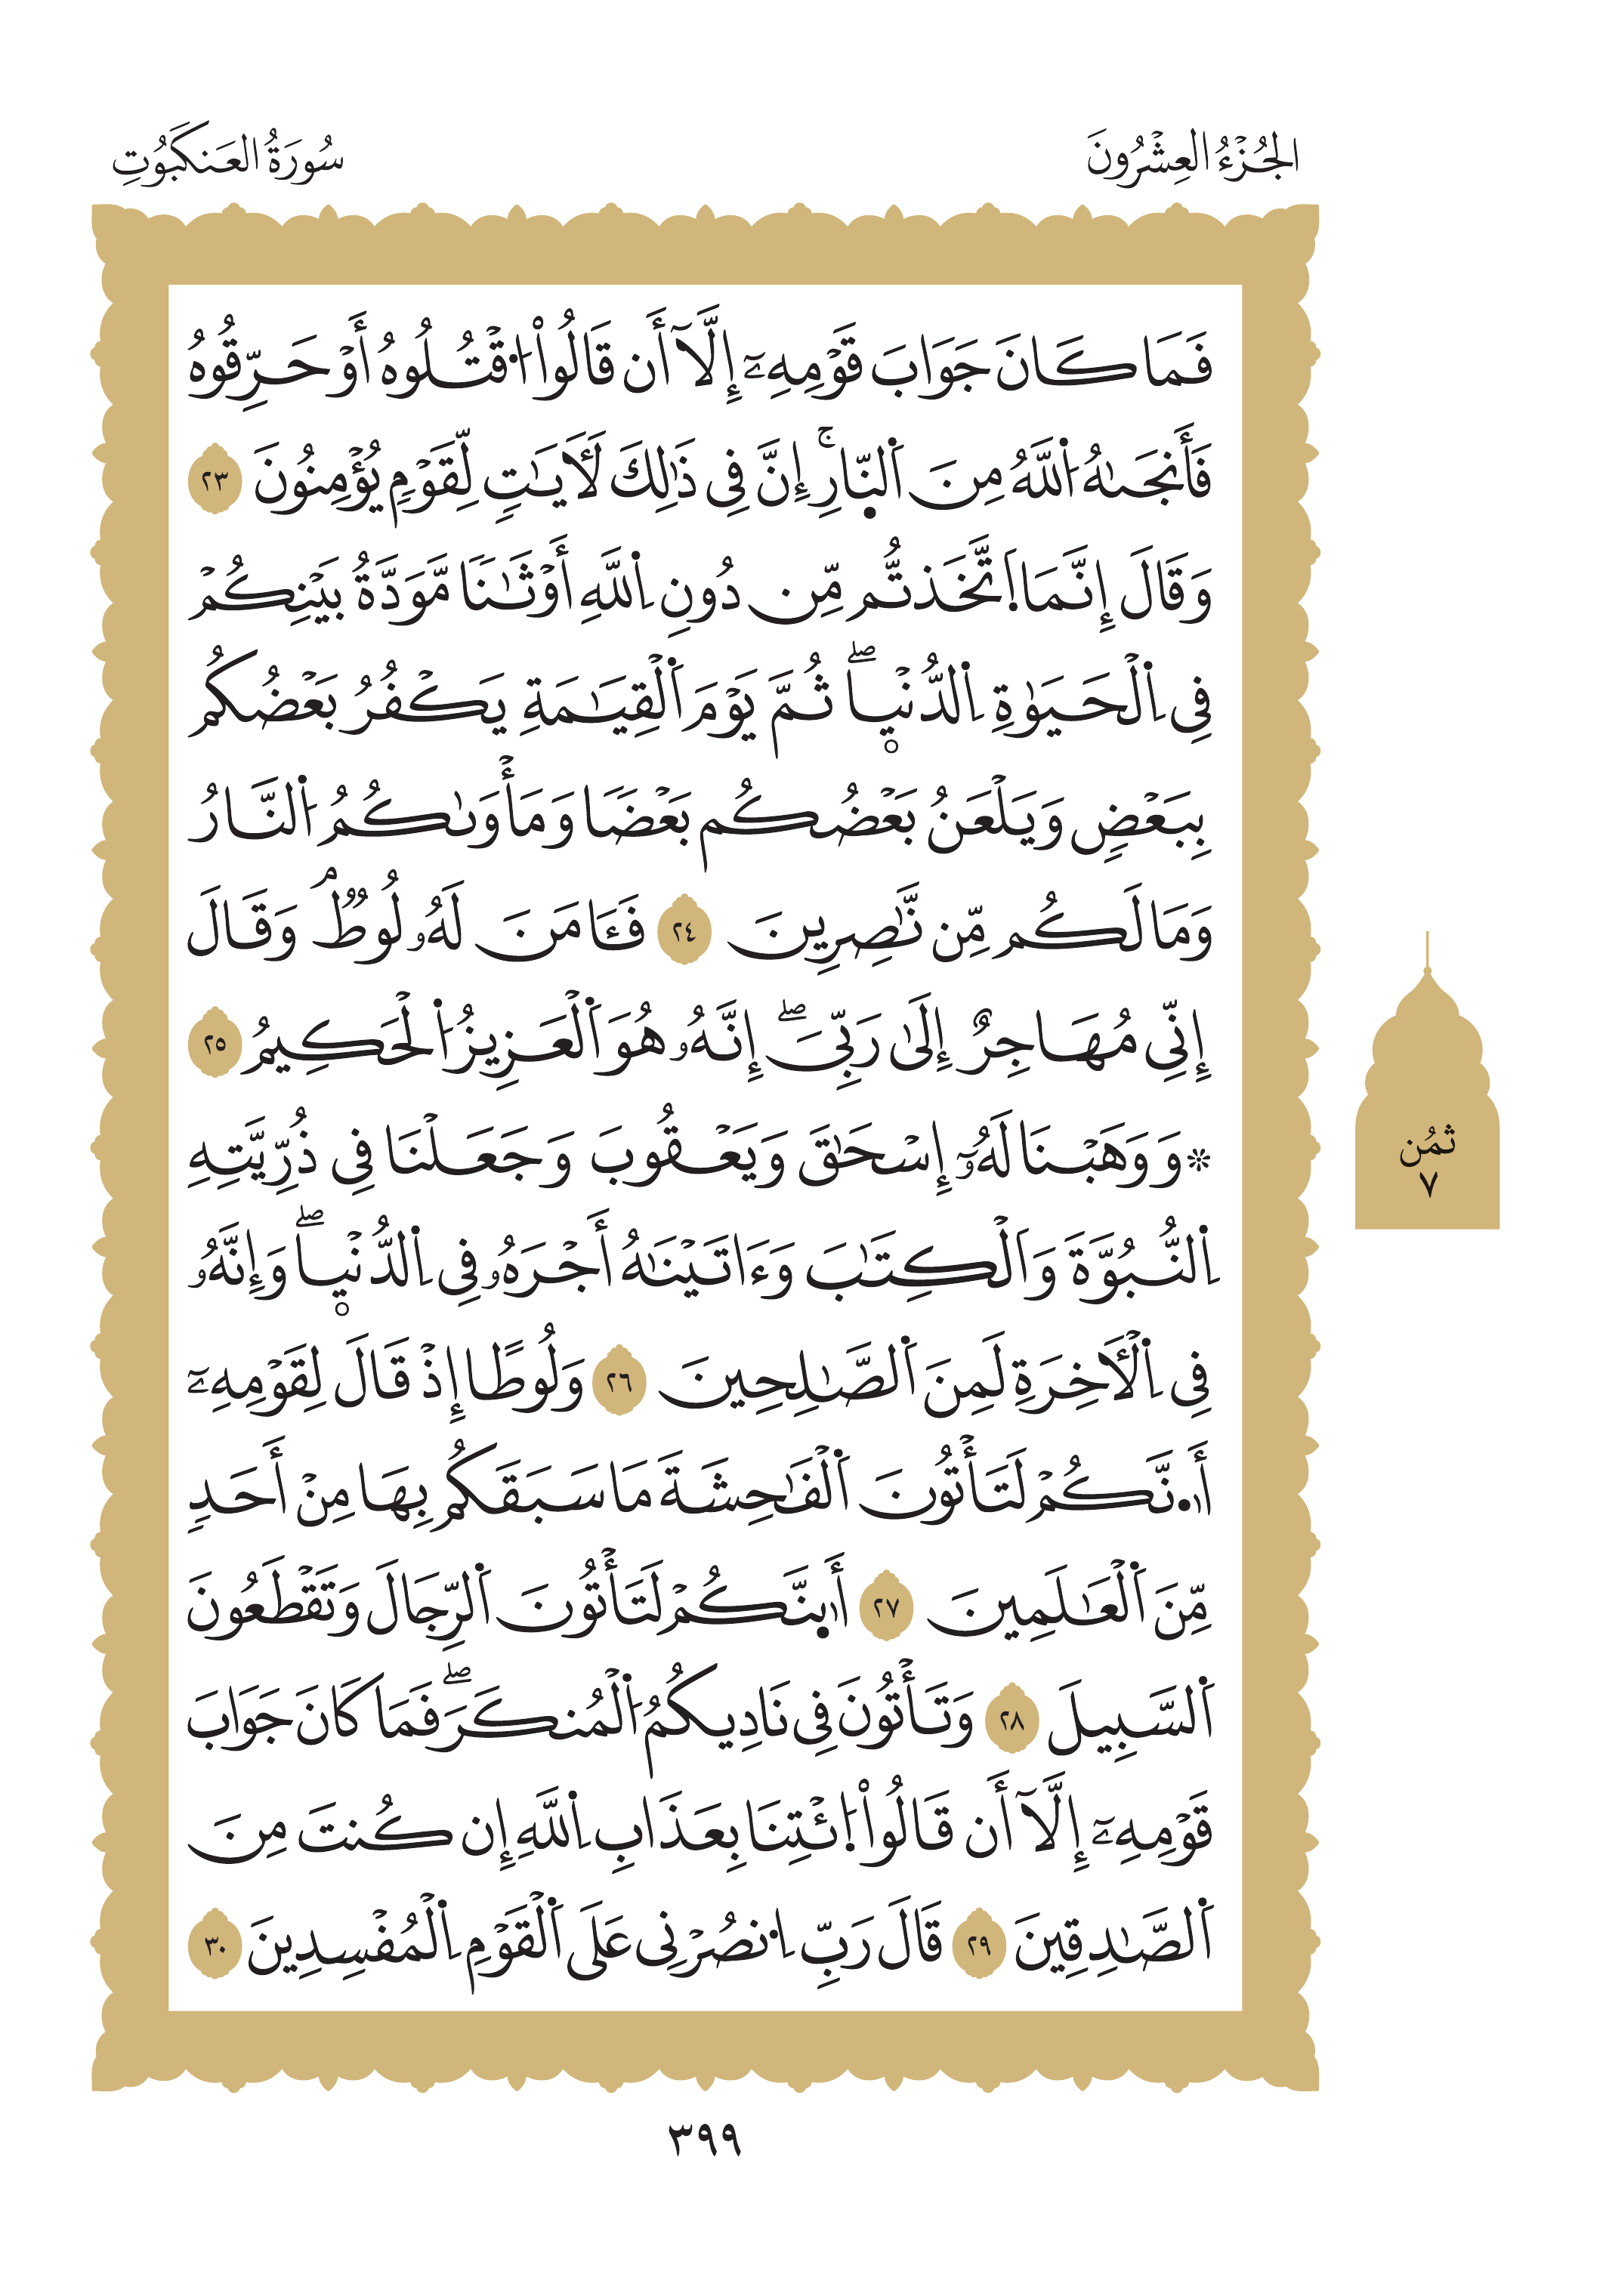 الجُزْءُ العِشْرُونَ
سُورَةُ العَنكَبُوتِ
فَمَا كَانَ جَوَابَ قَوْمِهِۦٓ إِلَّآ أَن قَالُواْ ا۟قْتُلُوهُ أَوْ حَرِّقُوهُ
فَأَنجَىٰهُ اُ۬للَّهُ مِنَ اَ۬لنّ۪ارِۚ إِنَّ فِى ذَٰلِكَ لَأٓيَٰتٖ لِّقَوْمٖ يُؤْمِنُونَ ٢٣
وَقَالَ إِنَّمَا اَ۪تَّخَذتُّم مِّن دُونِ اِ۬للَّهِ أَوْثَٰنٗا مَّوَدَّةُ بَيْنِكُمْ
فِى اِ۬لْحَيَوٰةِ اِ۬لدُّنْي۪اۖ ثُمَّ يَوْمَ اَ۬لْقِيَٰمَةِ يَكْفُرُ بَعْضُكُم
بِبَعْضٖ وَيَلْعَنُ بَعْضُكُم بَعْضٗا وَمَأْوَىٰكُمُ اُ۬لنَّارُ
وَمَا لَكُم مِّن نَّٰصِرِينَ ٢٤ فَـَٔامَنَ لَهُۥ لُوطٞۘ وَقَالَ
إِنِّى مُهَاجِرٌ إِلَىٰ رَبِّىَۖ إِنَّهُۥ هُوَ اَ۬لْعَزِيزُ اُ۬لْحَكِيمُ ٢٥
۞ وَوَهَبْنَا لَهُۥٓ إِسْحَٰقَ وَيَعْقُوبَ وَجَعَلْنَا فِى ذُرِّيَّتِهِ
اِ۬لنُّبُوَّةَ وَاَلْكِتَٰبَ وَءَاتَيْنَٰهُ أَجْرَهُۥ فِى اِ۬لدُّنْي۪اۖ وَإِنَّهُۥ
فِى اِ۬لْأٓخِرَةِ لَمِنَ اَ۬لصَّٰلِحِينَ ٢٦ وَلُوطًا إِذْ قَالَ لِقَوْمِهِۦٓ
أَٰ۟نَّكُمْ لَتَأْتُونَ اَ۬لْفَٰحِشَةَ مَا سَبَقَكُم بِهَا مِنْ أَحَدٖ
مِّنَ اَ۬لْعَٰلَمِينَ ٢٧ أَٰي۪نَّكُمْ لَتَأْتُونَ اَ۬لرِّجَالَ وَتَقْطَعُونَ
اَ۬لسَّبِيلَ ٢٨ وَتَأْتُونَ فِى نَادِيكُمُ اُ۬لْمُنكَرَۖ فَمَا كَانَ جَوَابَ
قَوْمِهِۦٓ إِلَّآ أَن قَالُواْ اُ۪ئْتِنَا بِعَذَابِ اِ۬للَّهِ إِن كُنتَ مِنَ
اَ۬لصَّٰدِقِينَ ٢٩ قَالَ رَبِّ اِ۟نصُرْنِى عَلَى اَ۬لْقَوْمِ اِ۬لْمُفْسِدِينَ ٣٠
ثُمُن
٧
٣٩٩